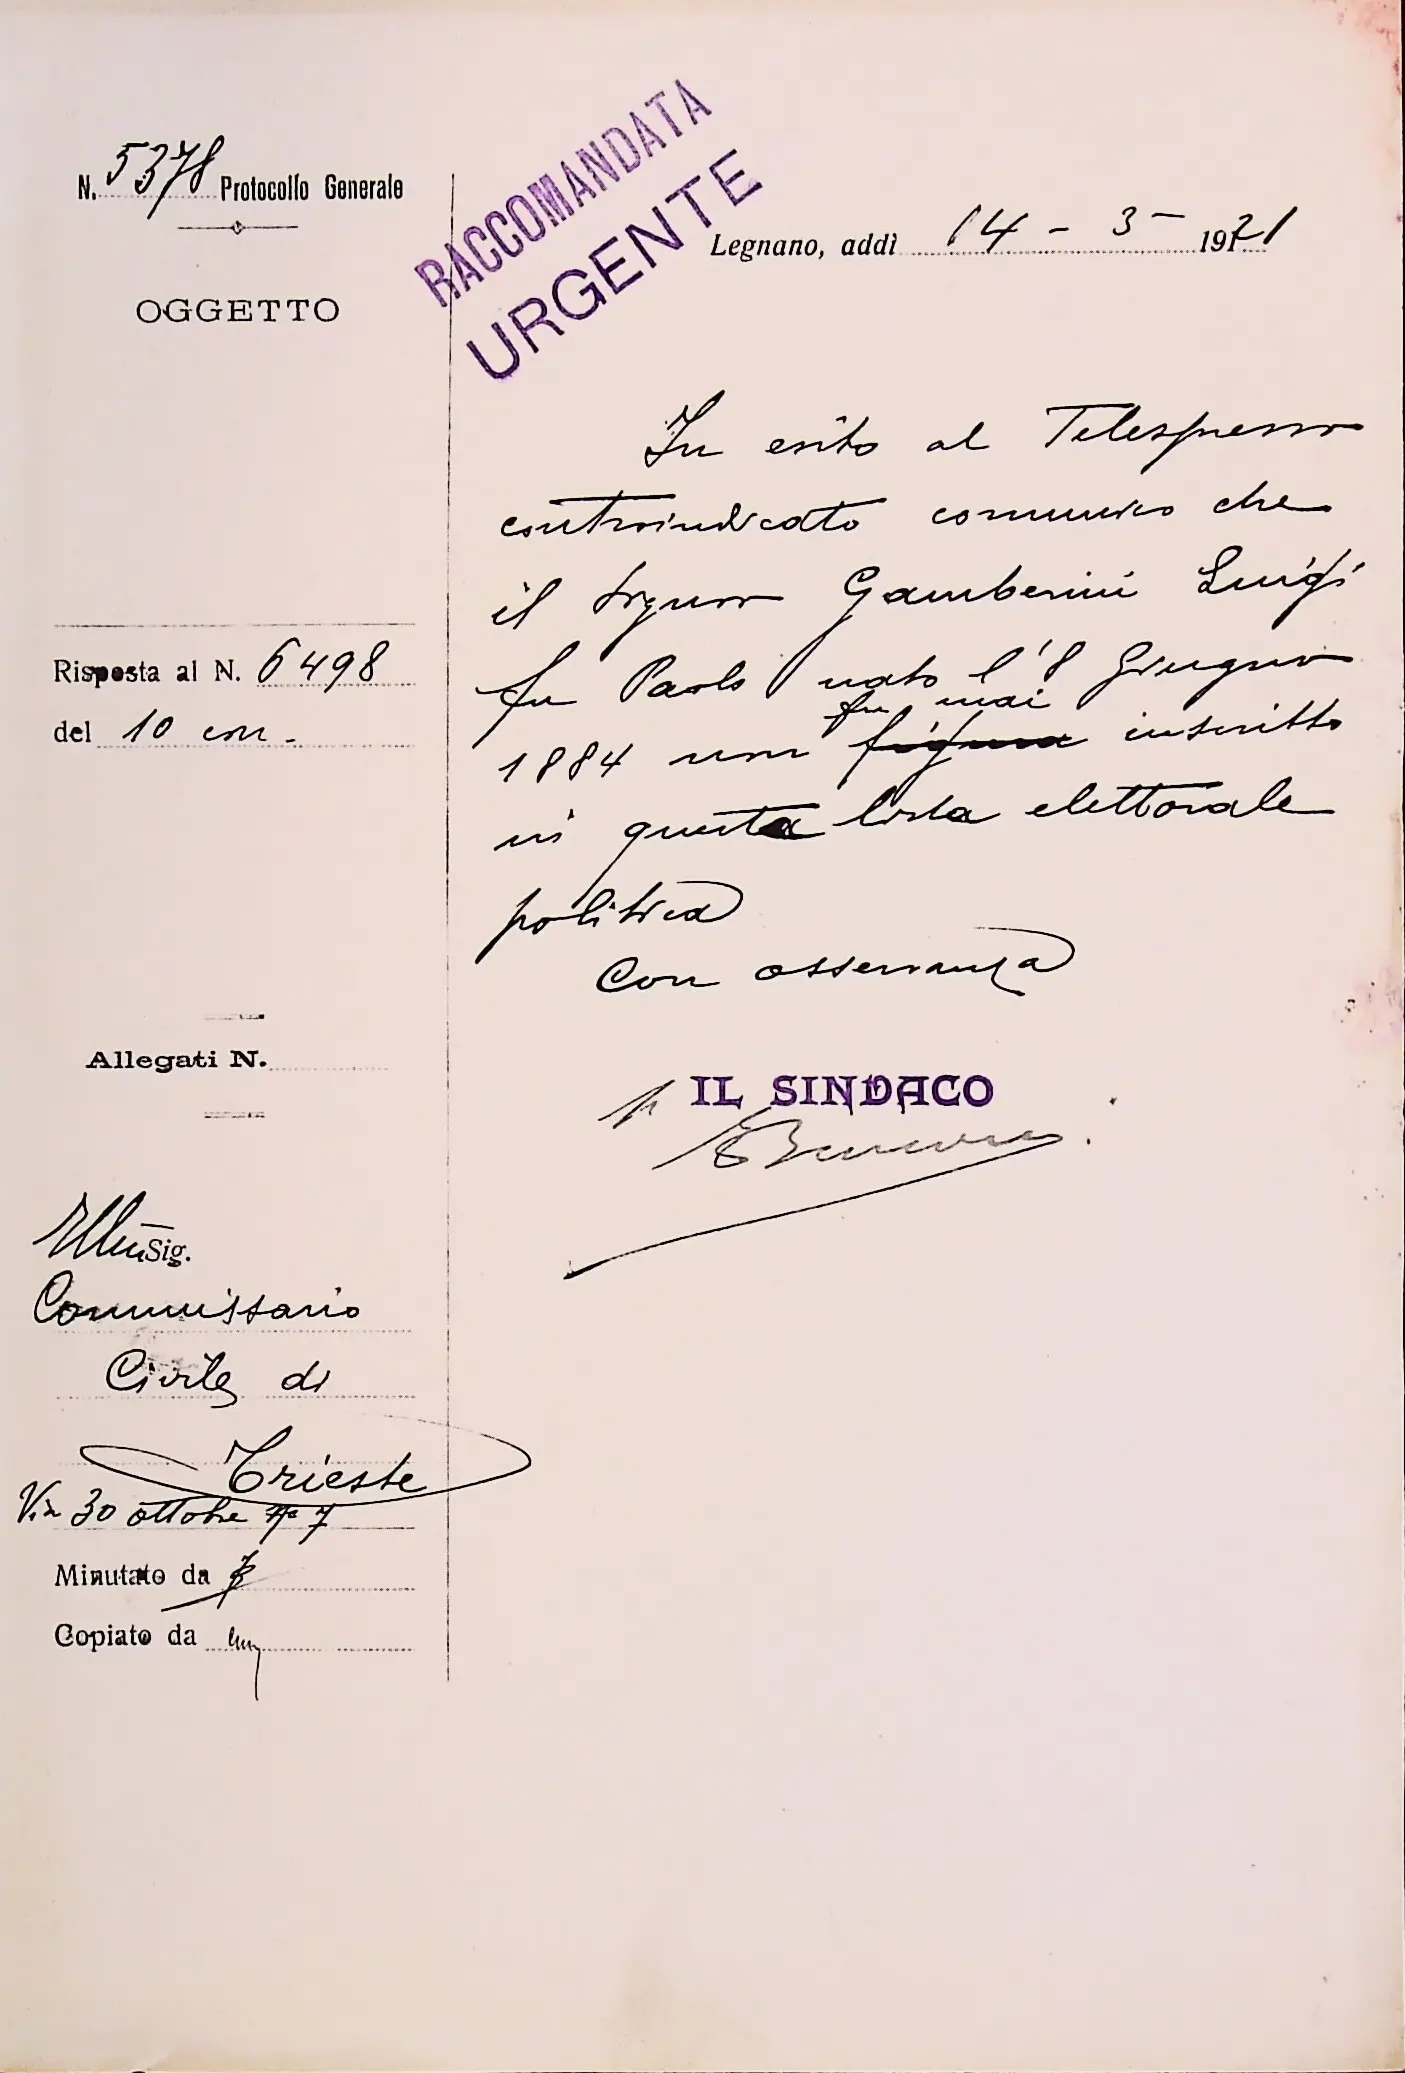 N. 5378 Protocollo Generale
RACCOMANDATA
URGENTE
Legnano, addì 14 - 3 - 1921
OGGETTO
In esito al Telespresso
controindicato comunico che
il Signor Gamberini Luigi
fu Paolo nato l'8 Giugno
fu mai
1884 non figura inscritto
in questa lista elettorale
politica
Con osservanza
Risposta al N. 6498
del 10 corr.
Allegati N.
p IL SINDACO
Ill.mo Sig.
Commissario
Civile di
Trieste
Via 30 ottobre No 7
Minutato da
Copiato da